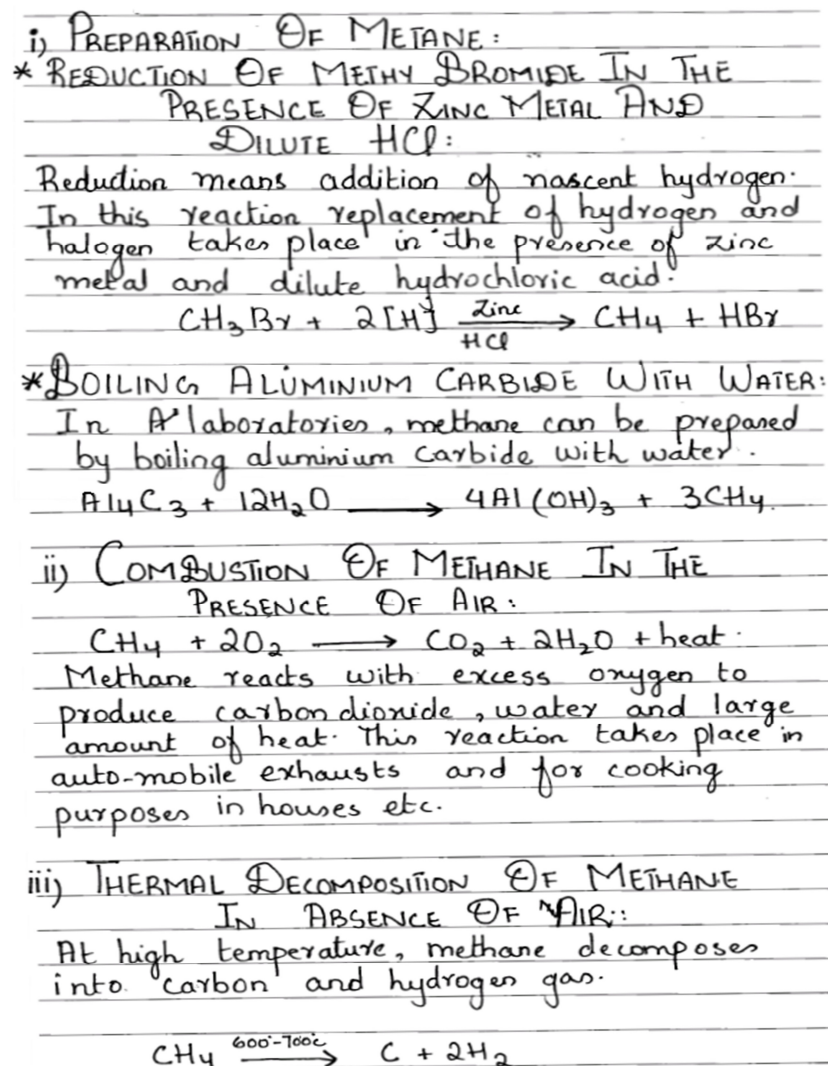 i) PREPARATION OF METANE:
* REDUCTION OF METHY BROMIDE IN THE
PRESENCE OF ZINC METAL AND
DILUTE HCl:
Reduction means addition of nascent hydrogen.
In this reaction replacement of hydrogen and
halogen takes place in the presence of zinc
metal and dilute hydrochloric acid.
CH₃Br + 2[H] Zinc/HCl → CH₄ + HBr
* BOILING ALUMINIUM CARBIDE WITH WATER:
In A laboratories, methane can be prepared
by boiling aluminium carbide with water.
Al₄C₃ + 12H₂O → 4Al(OH)₃ + 3CH₄.
ii) COMBUSTION OF METHANE IN THE
PRESENCE OF AIR:
CH₄ + 2O₂ → CO₂ + 2H₂O + heat.
Methane reacts with excess oxygen to
produce carbon dioxide, water and large
amount of heat. This reaction takes place in
auto-mobile exhausts and for cooking
purposes in houses etc.
iii) THERMAL DECOMPOSITION OF METHANE
IN ABSENCE OF AIR::
At high temperature, methane decomposes
into carbon and hydrogen gas.
CH₄ 600°-700°C → C + 2H₂